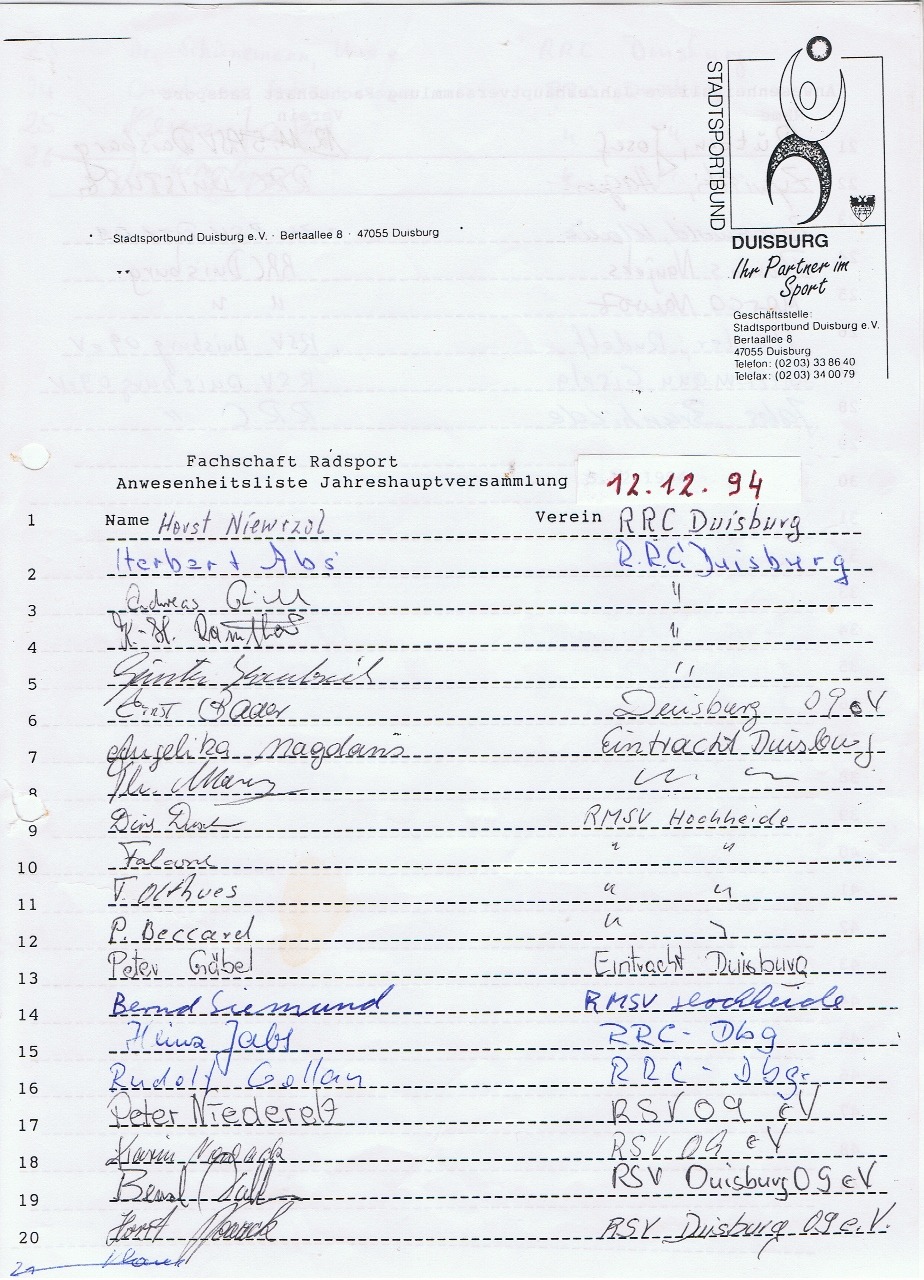 STADTSPORTBUND
DUISBURG
Ihr Partner im
Sport
Stadtsportbund Duisburg e.V. · Bertaallee 8 · 47055 Duisburg
Geschäftsstelle:
Stadtsportbund Duisburg e.V.
Bertaallee 8
47055 Duisburg
Telefon: (02 03) 33 86 40
Telefax: (02 03) 34 00 79
Fachschaft Radsport
Anwesenheitsliste Jahreshauptversammlung 12.12.94
1 Name Horst Niewrzol Verein RRC Duisburg
2 Herbert Abs R.R.C. Duisburg
3 Andreas "
4 K-H. "
5 Günter "
6 Ernst Bader Duisburg 09 eV
7 Angelika Magdans Eintracht Duisburg
8
9 Dirk RMSV Hochheide
10 Falcone " "
11 T. Olthues " "
12 P. Beccard "
13 Peter Gäbel Eintracht Duisburg
14 Bernd Siemund RMSV Hochheide
15 Heinz Jabs RRC - Dbg
16 Rudolf Gollan RRC - Dbgr
17 Peter Niederelz RSV 09 eV
18 Karin RSV 09 eV
19 Bernd RSV Duisburg 09 eV
20 Horst RSV Duisburg 09 e.V.